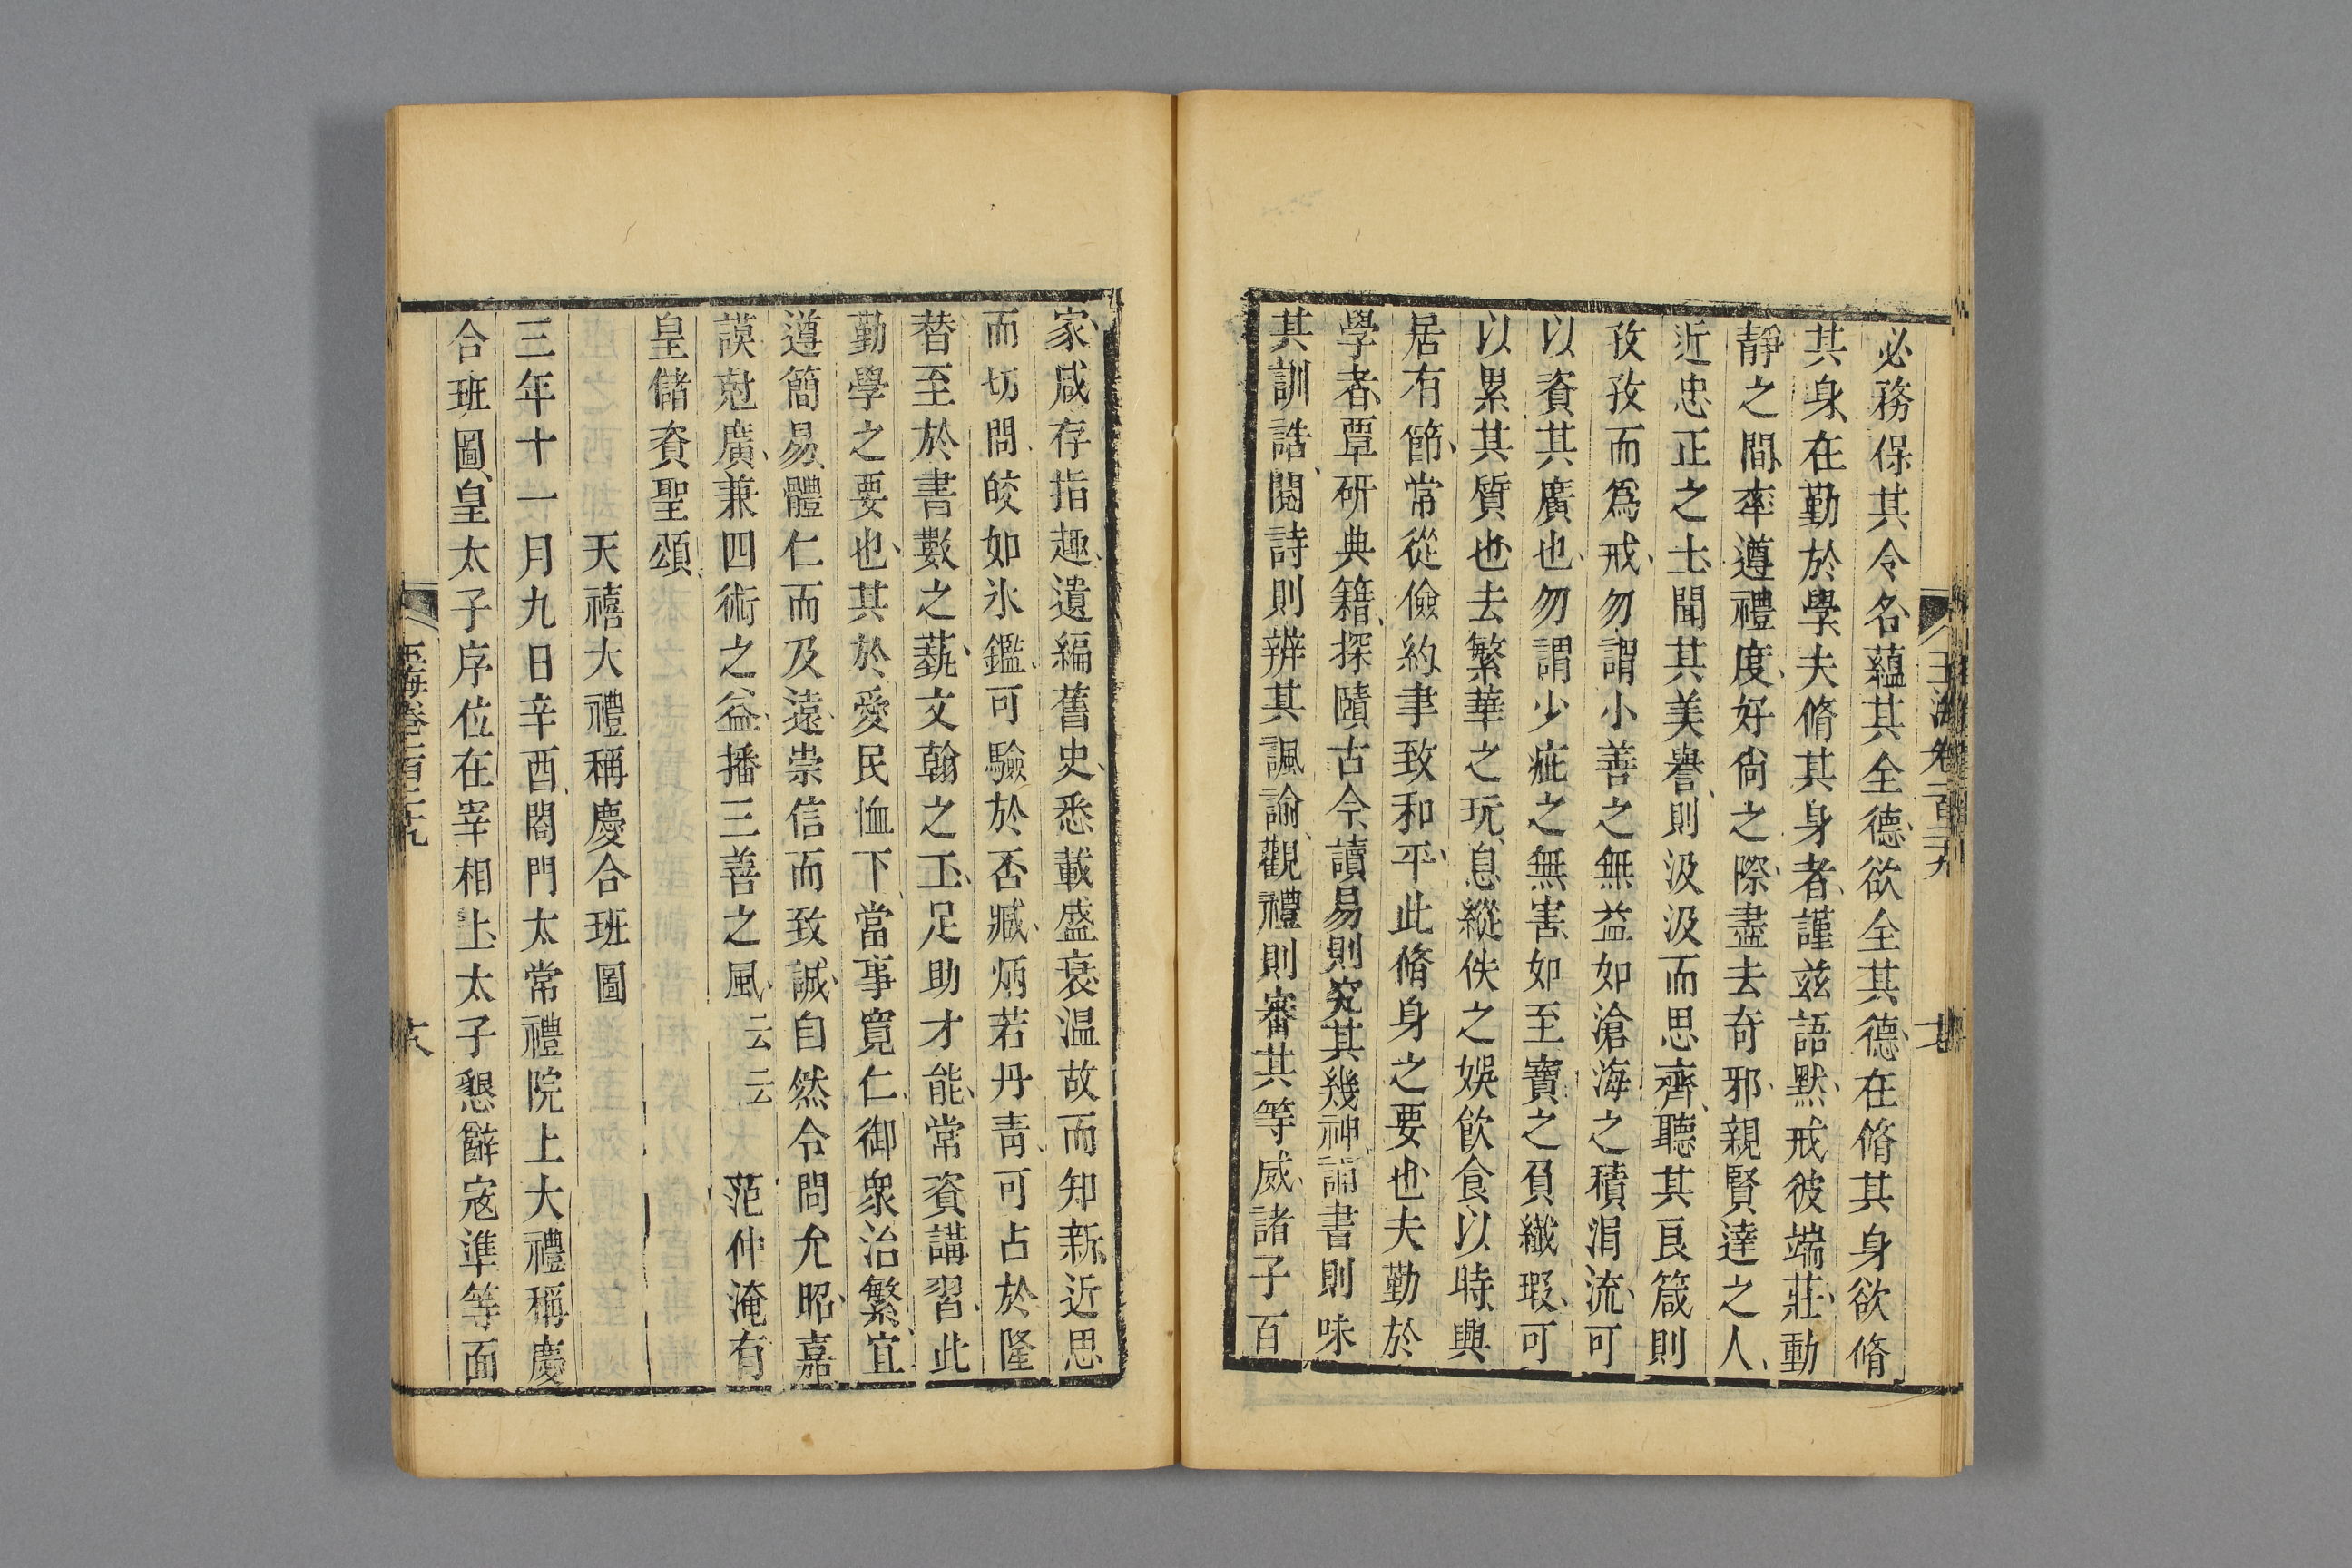 必務保其令名蘊其全德欲全其德在脩其身欲脩
其身在勤於學夫脩其身者謹兹語黙戒彼端莊動
靜之間率遵禮度好尙之際盡去奇邪親賢達之人
近忠正之士聞其美譽則汲汲而思齊聽其良箴則
孜孜而爲戒勿謂小善之無益如滄海之積涓流可
以資其廣也勿謂少疵之無害如至寶之負纖瑕可
以累其質也去繁華之玩息縱佚之娛飲食以時興
居有節常從儉約聿致和平此脩身之要也夫勤於
學者覃研典籍探賾古今讀易則究其幾神誦書則味
其訓誥閱詩則辨其諷諭觀禮則審其等威諸子百
家咸存指趣遺編舊史悉載盛衰温故而知新近思
而切問皎如氷鑑可驗於否臧炳若丹靑可占於隆
替至於書數之蓺文翰之工足助才能常資講習此
勤學之要也其於愛民恤下當事寛仁御衆治繁宜
遵簡易體仁而及遠崇信而致誠自然令問允昭嘉
謨尅廣兼四術之益播三善之風云云 范仲淹有
皇儲資聖頌
天禧大禮稱慶合班圖
三年十一月九日辛酉閤門太常禮院上大禮稱慶
合班圖皇太子序位在宰相上太子懇辭寇準等面
玉海卷一百二十九